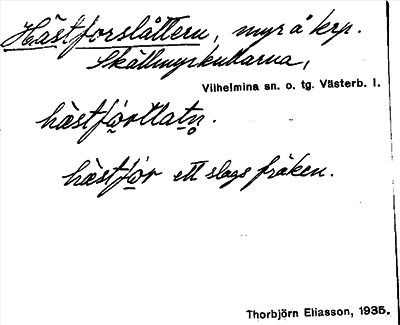 Hästforslåttern, myr å krp.
Skällmyrkullarna,
Vilhelmina sn. o. tg. Västerb. l.
hästfo̰rtlatn̥.
hästfor ett slags fräken.
Thorbjörn Eliasson, 1935.